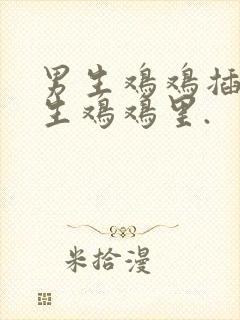 男生鸡鸡插
生鸡鸡里.
米拾漫